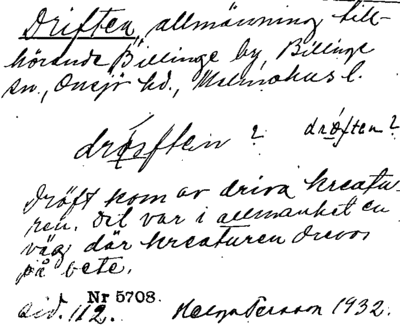 Driften, allmänning till-
hörande Billinge by, Billinge
sn, Onsjö hd., Malmöhus l.
dröften ? dröften ?
Dröft kom av driva kreatu-
ren. Det var i allmänhet en
väg där kreaturen drevos
på bete.
Nr 5708.
Sid. 112. Helga Persson 1932.